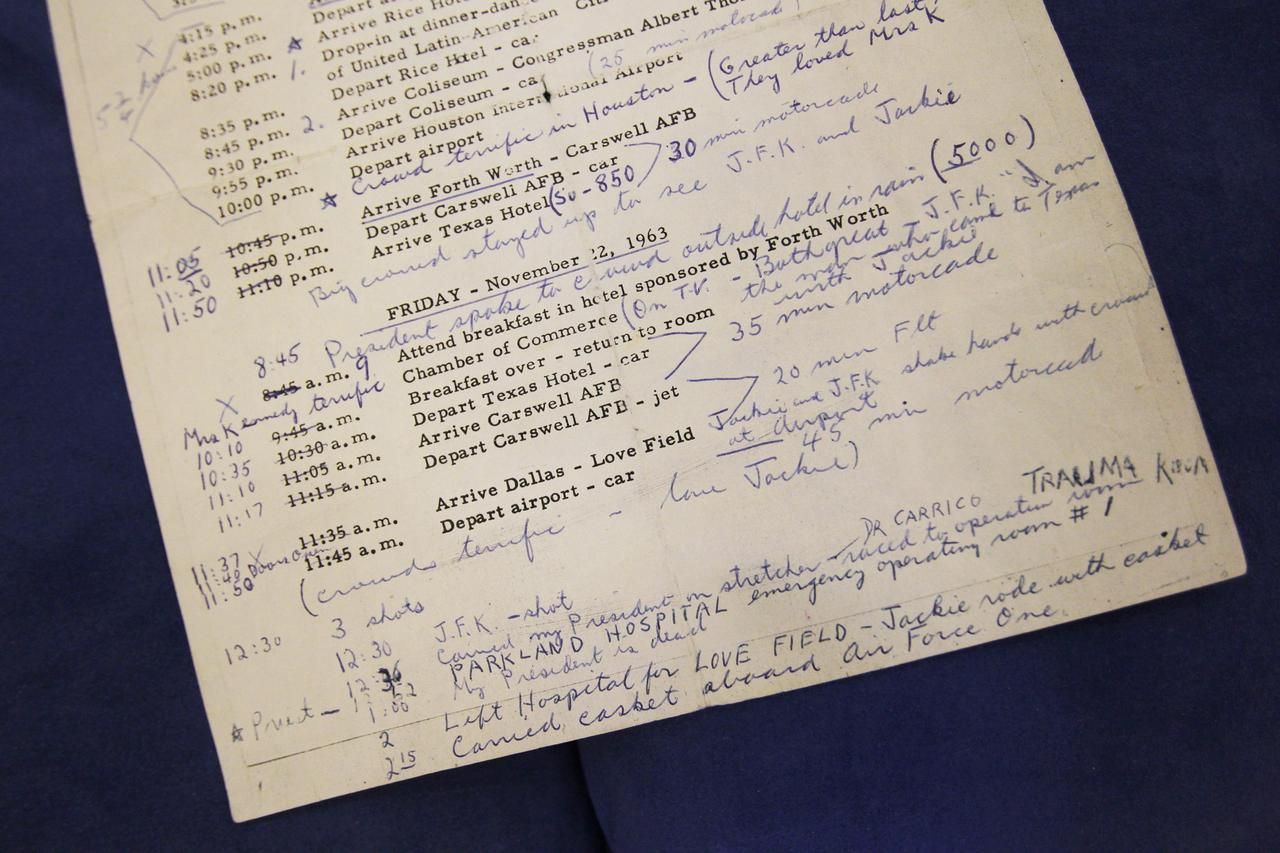 4:15 p.m.
4:25 p.m. Arrive Rice
5:00 p.m. Drop-in at dinner-dan
of United Latin-American
8:20 p.m. Depart Rice Hotel - car
1. Arrive Coliseum - Congressman Albert Tho
8:35 p.m. Depart Coliseum - ca (25 min
8:45 p.m. 2. Arrive Houston International Airport
9:30 p.m. Depart airport
9:55 p.m. Crowd terrific in Houston - (Greater than last
They loved Mrs K
10:00 p.m.
Arrive Forth Worth - Carswell AFB
11:05 10:45 p.m. Depart Carswell AFB - car 30 min motorcade
11:20 10:50 p.m. Arrive Texas Hotel (So-850
11:50 11:10 p.m. Big crowd stayed up to see J.F.K. and Jackie
FRIDAY - November 22, 1963
8:45 President spoke to crowd outside hotel in rain (5000)
8:45 a.m. 9 Attend breakfast in hotel sponsored by Forth Worth
Chamber of Commerce (On T.V. - Both great J.F.K. "I am
the man who came to Texas
with Jackie
X Mrs Kennedy terrific
10:10 9:45 a.m. Breakfast over - return to room
10:35 10:30 a.m. Depart Texas Hotel - car 35 min motorcade
11:10 11:05 a.m. Arrive Carswell AFB
11:17 11:15 a.m. Depart Carswell AFB - jet 20 min Flt
Jackie and J.F.K shake hands with crowd
at Airport
11:37 11:35 a.m. Arrive Dallas - Love Field
11:40 Doors Open
11:50 11:45 a.m. Depart airport - car 45 min motorcad
(crowds terrific - love Jackie)
12:30 3 shots
12:30 J.F.K. - shot
DR CARRICO TRAUMA ROOM
12:36 Carried my President on stretcher - raced to operation room
PARKLAND HOSPITAL emergency operating room #1
Priest - 1:00 My President is dead
2 Left Hospital for LOVE FIELD - Jackie rode with casket
2 15 Carried casket aboard Air Force One.